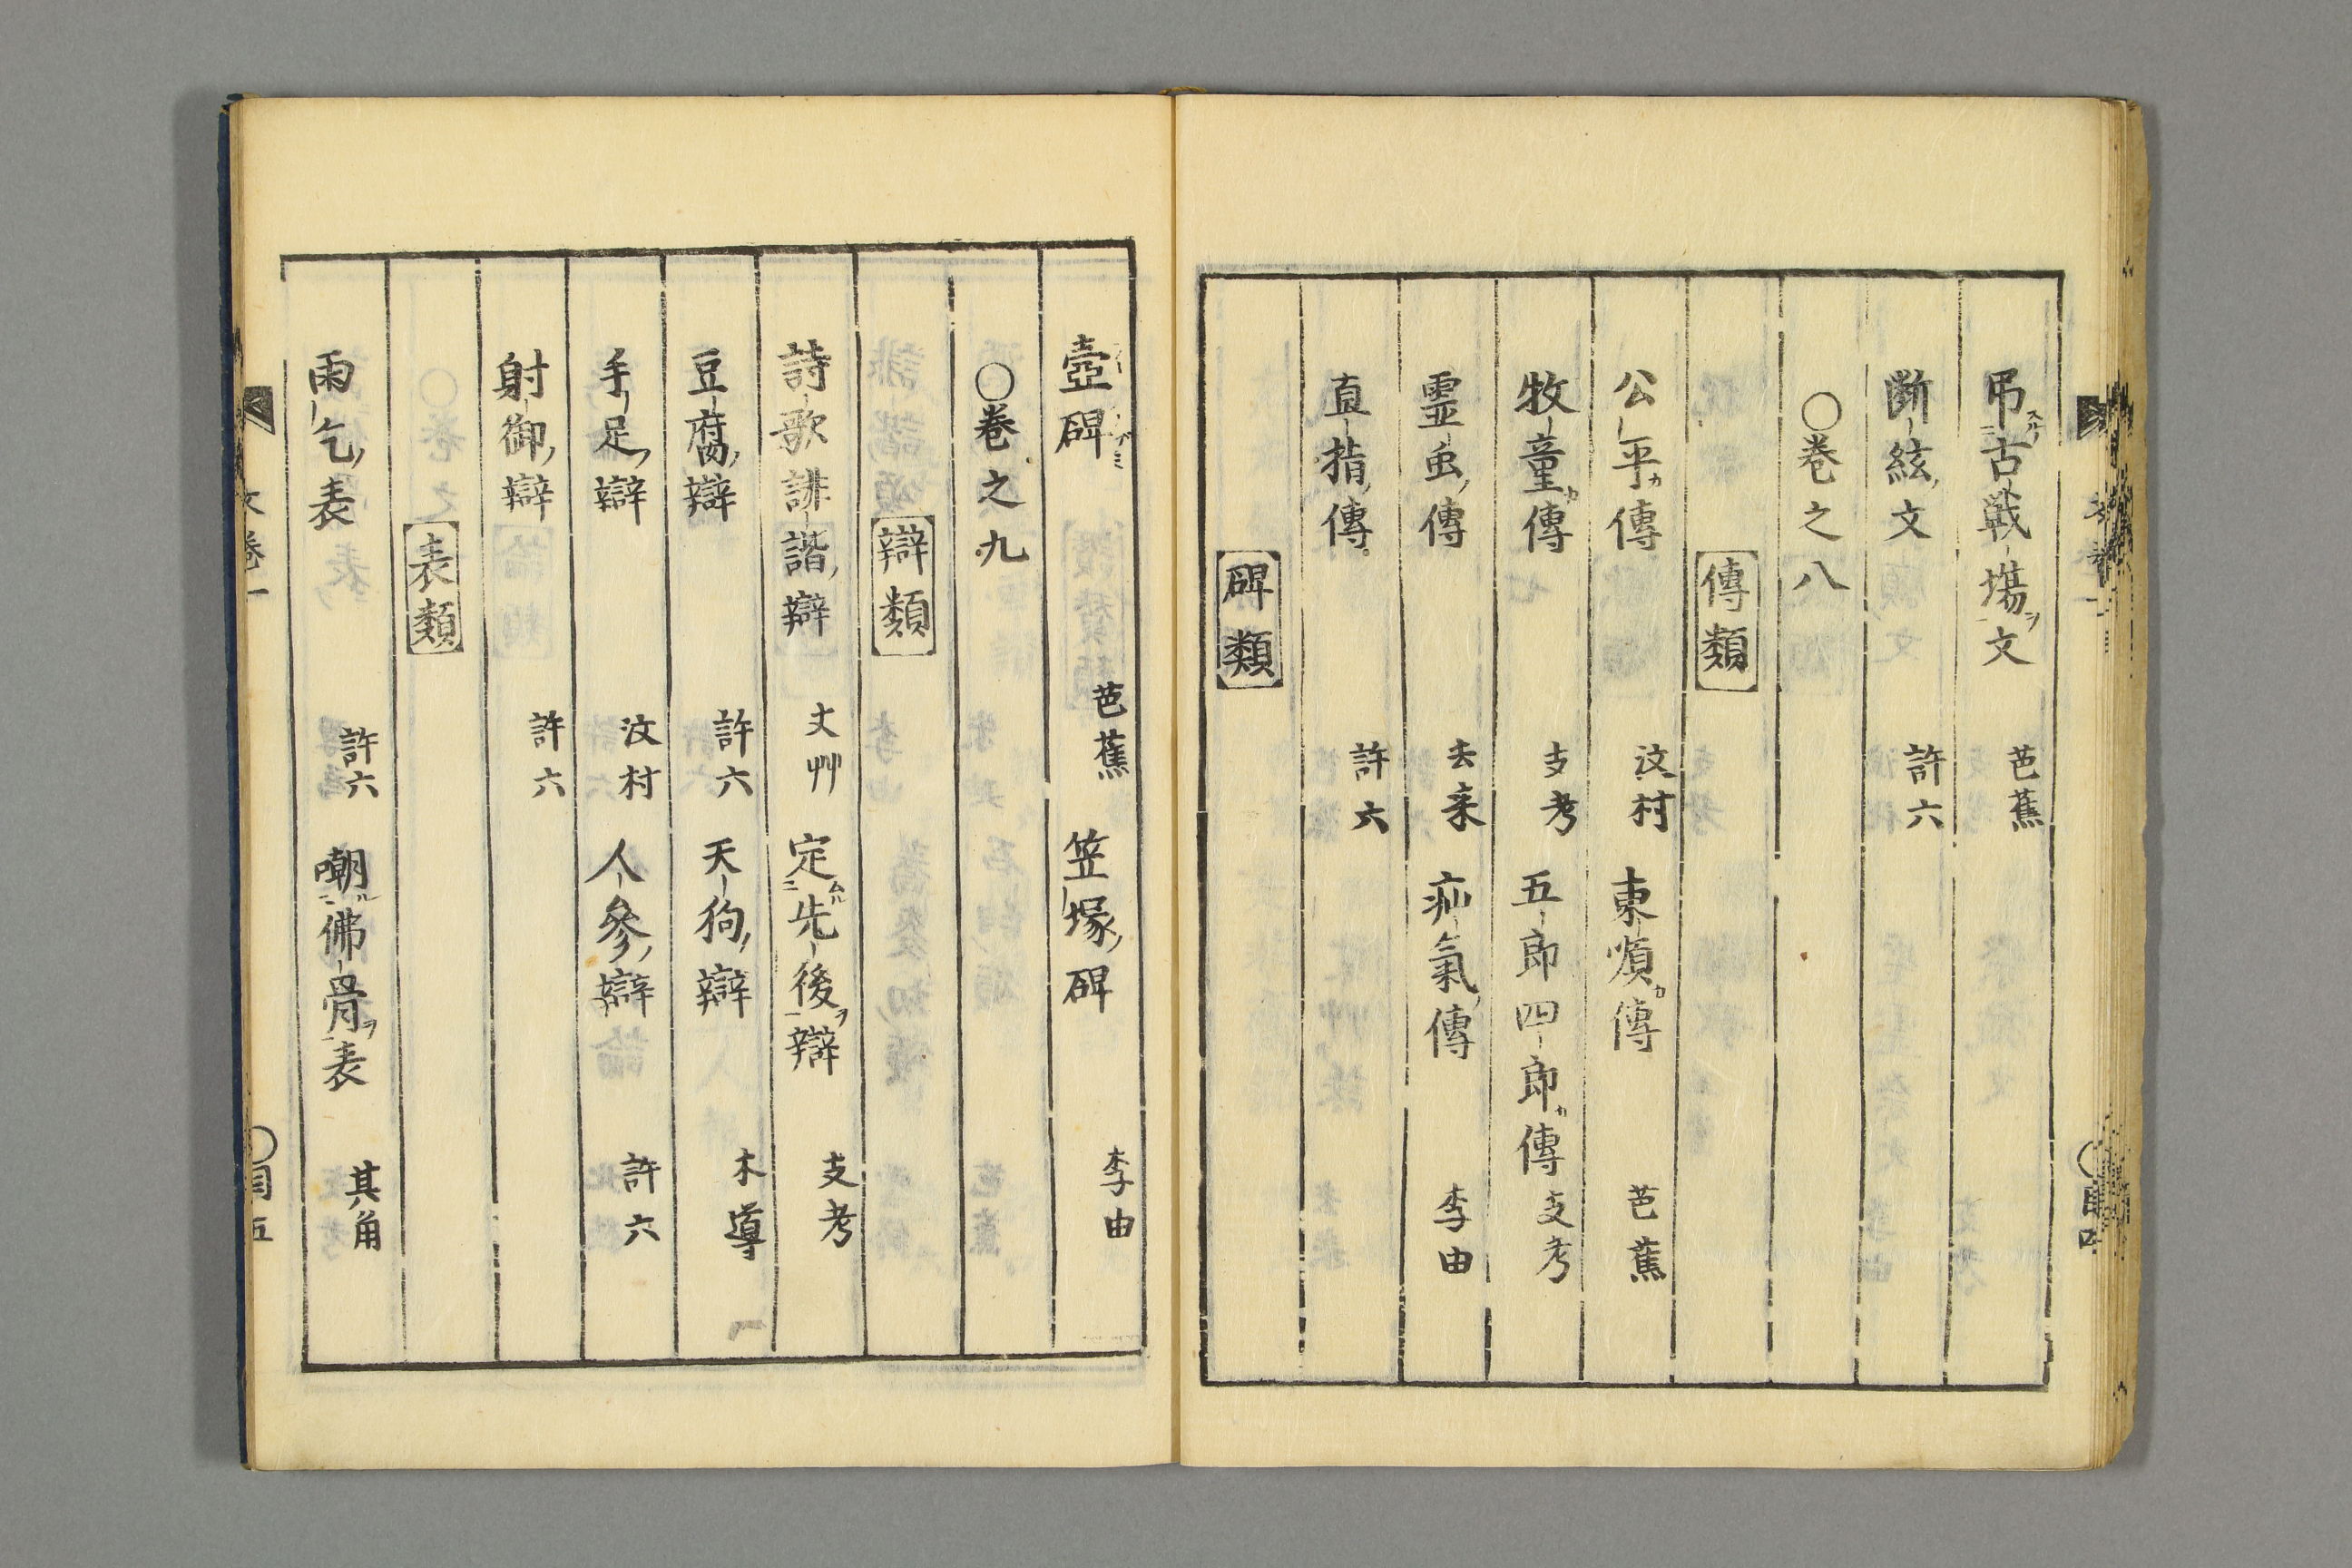 弔古戰場文　芭蕉
断絃文　許六
○巻之八
傳類
公平傳　汶村　東順傳　芭蕉
牧童傳　支考　五郎四郎傳　支考
霊虫傳　去来　疝氣傳　李由
直指傳　許六
碑類
壺碑　芭蕉　笠塚碑　李由
○巻之九
辯類
詩歌誹諧辯　丈艸　定先後辯　支考
豆腐辯　許六　天狗辯　木導
手足辯　汶村　人參辯　許六
射御辯　許六
表類
雨乞表　許六　嘲佛骨表　其角